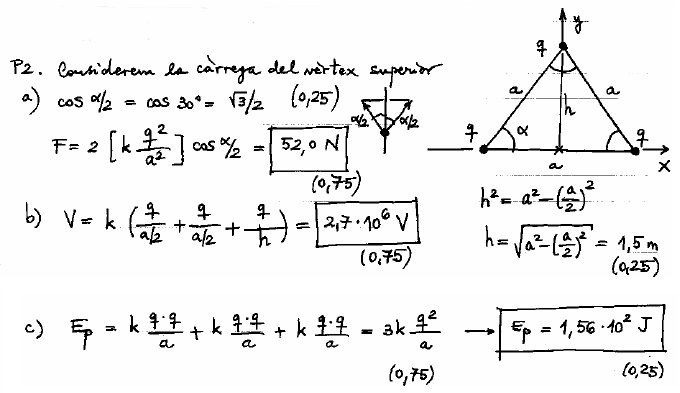 P2. Considerem la càrrega del vèrtex superior
a) cos α/2 = cos 30° = √3/2 (0,25)
α/2 α/2
F = 2 [k q²/a²] cos α/2 = 52,0 N
(0,75)
b) V = k (q/(a/2) + q/(a/2) + q/h) = 2,7·10⁶ V
(0,75)
y
q
a h a
q α q
a x
h² = a² - (a/2)²
h = √(a² - (a/2)²) = 1,5 m
(0,25)
c) Ep = k q·q/a + k q·q/a + k q·q/a = 3k q²/a → Ep = 1,56·10² J
(0,75) (0,25)